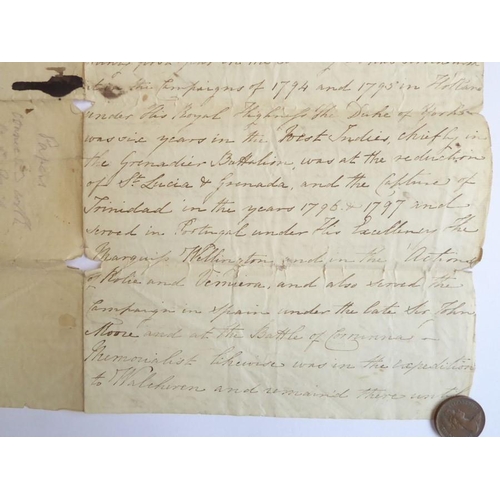 the Campaigns of 1794 and 1795 in Holland
under His Royal Highness the Duke of York
was six years in the West Indies, chiefly in
the Grenadier Battalion, was at the reduction
of St. Lucia & Grenada, and the Capture
Trinidad in the years 1796 & 1797 and
served in Portugal under His Excellency the
Marquiss Wellington and in the Actions
Rolie and Vimiera, and also served the
Campaign in Spain under the late Sir John
Moore and at the Battle of Corunna
Memorialist likewise was in the expedition
to Walcheren and remained there until
Papers